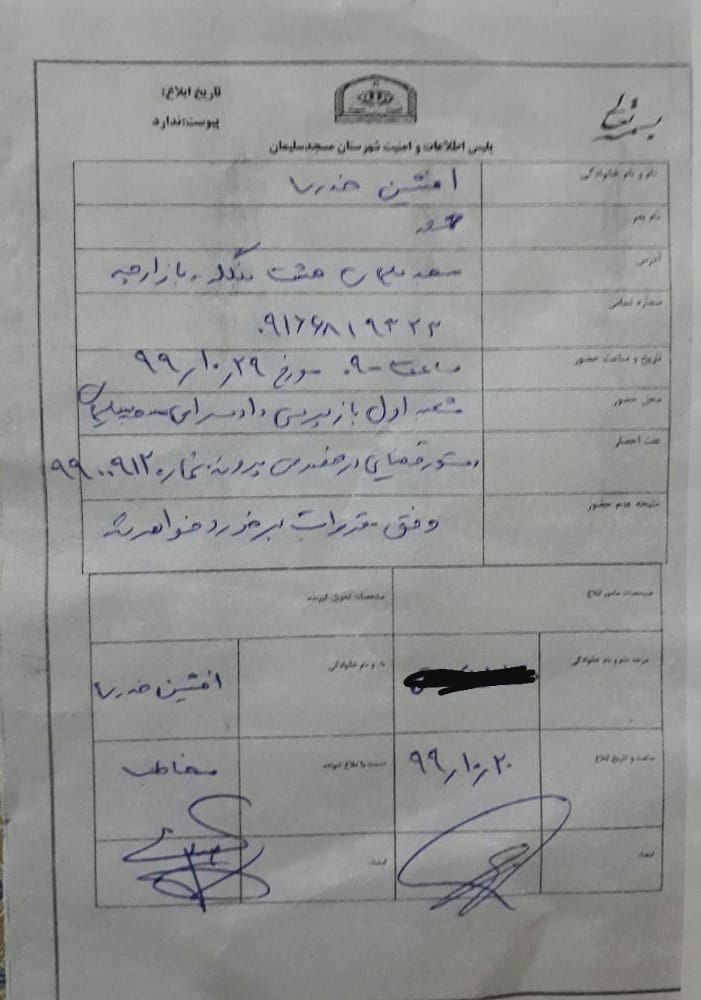 بسمه تعالی
تاریخ ابلاغ:
پیوست:ندارد
پلیس اطلاعات و امنیت شهرستان مسجدسلیمان
نام و نام خانوادگی
افشین
نام پدر
آدرس
هشت بنگله بازارچه
شماره تماس
۰۹۱۶۶۸۱۹۳۲۳
تاریخ و ساعت حضور
ساعت ۹۰۰ مورخ ۹۹/۱۰/۲۹
محل حضور
شعبه اول بازپرسی دادسرای مسجدسلیمان
علت احضار
دستور قضایی در خصوص پرونده شماره ۹۹۰۰۹۱۲
نتیجه عدم حضور
وفق مقررات برخورد خواهد شد
مشخصات مامور ابلاغ
مشخصات تحویل گیرنده
درجه نام و نام خانوادگی
نام و نام خانوادگی
افشین
ساعت و تاریخ ابلاغ
۹۹/۱۰/۲۰
نسبت با ابلاغ شونده
مخاطب
امضاء
امضاء